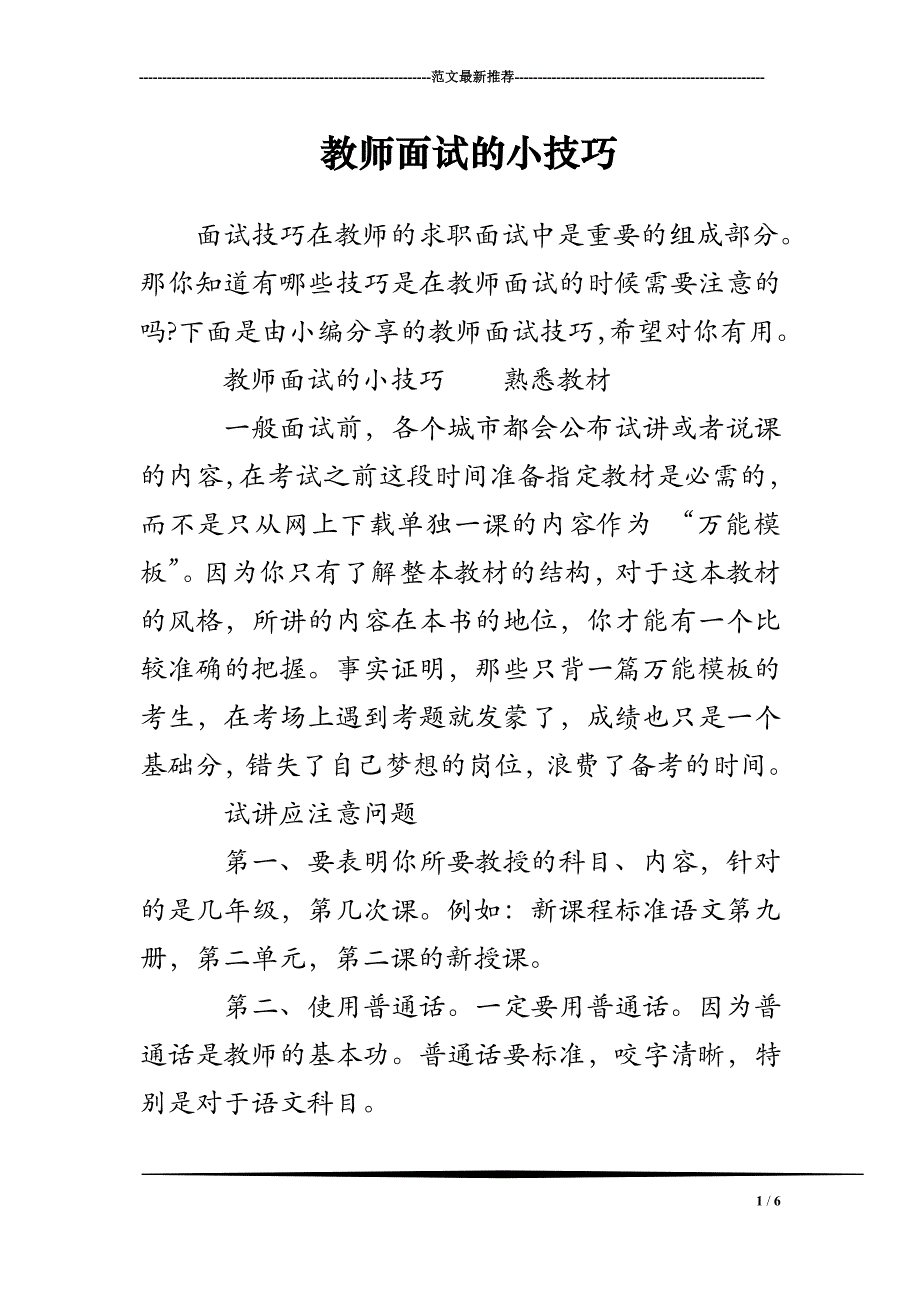 ---------------------------------------------------------------范文最新推荐------------------------------------------------------
教师面试的小技巧
面试技巧在教师的求职面试中是重要的组成部分。
那你知道有哪些技巧是在教师面试的时候需要注意的
吗?下面是由小编分享的教师面试技巧,希望对你有用。
教师面试的小技巧 熟悉教材
一般面试前，各个城市都会公布试讲或者说课
的内容,在考试之前这段时间准备指定教材是必需的，
而不是只从网上下载单独一课的内容作为 “万能模
板”。因为你只有了解整本教材的结构，对于这本教材
的风格，所讲的内容在本书的地位，你才能有一个比
较准确的把握。事实证明，那些只背一篇万能模板的
考生，在考场上遇到考题就发蒙了，成绩也只是一个
基础分，错失了自己梦想的岗位，浪费了备考的时间。
试讲应注意问题
第一、要表明你所要教授的科目、内容，针对
的是几年级，第几次课。例如：新课程标准语文第九
册，第二单元，第二课的新授课。
第二、使用普通话。一定要用普通话。因为普
通话是教师的基本功。普通话要标准，咬字清晰，特
别是对于语文科目。
1 / 6